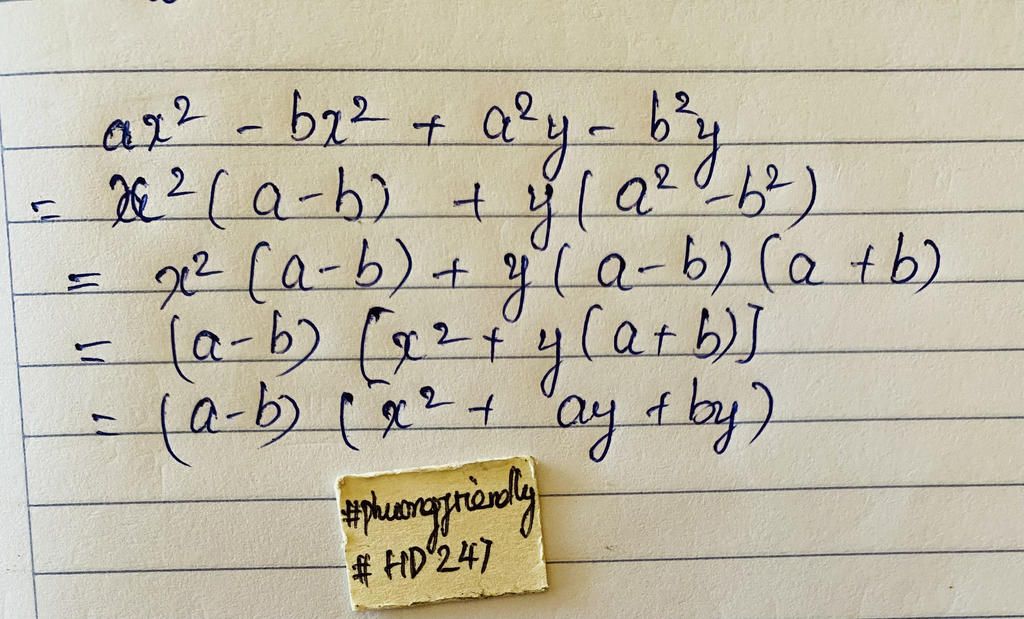 ax² - bx² + a²y - b²y
= x²(a-b) + y(a²-b²)
= x²(a-b) + y(a-b)(a+b)
= (a-b) [x² + y(a+b)]
= (a-b) (x² + ay + by)
#phuongfriendly
# HD247